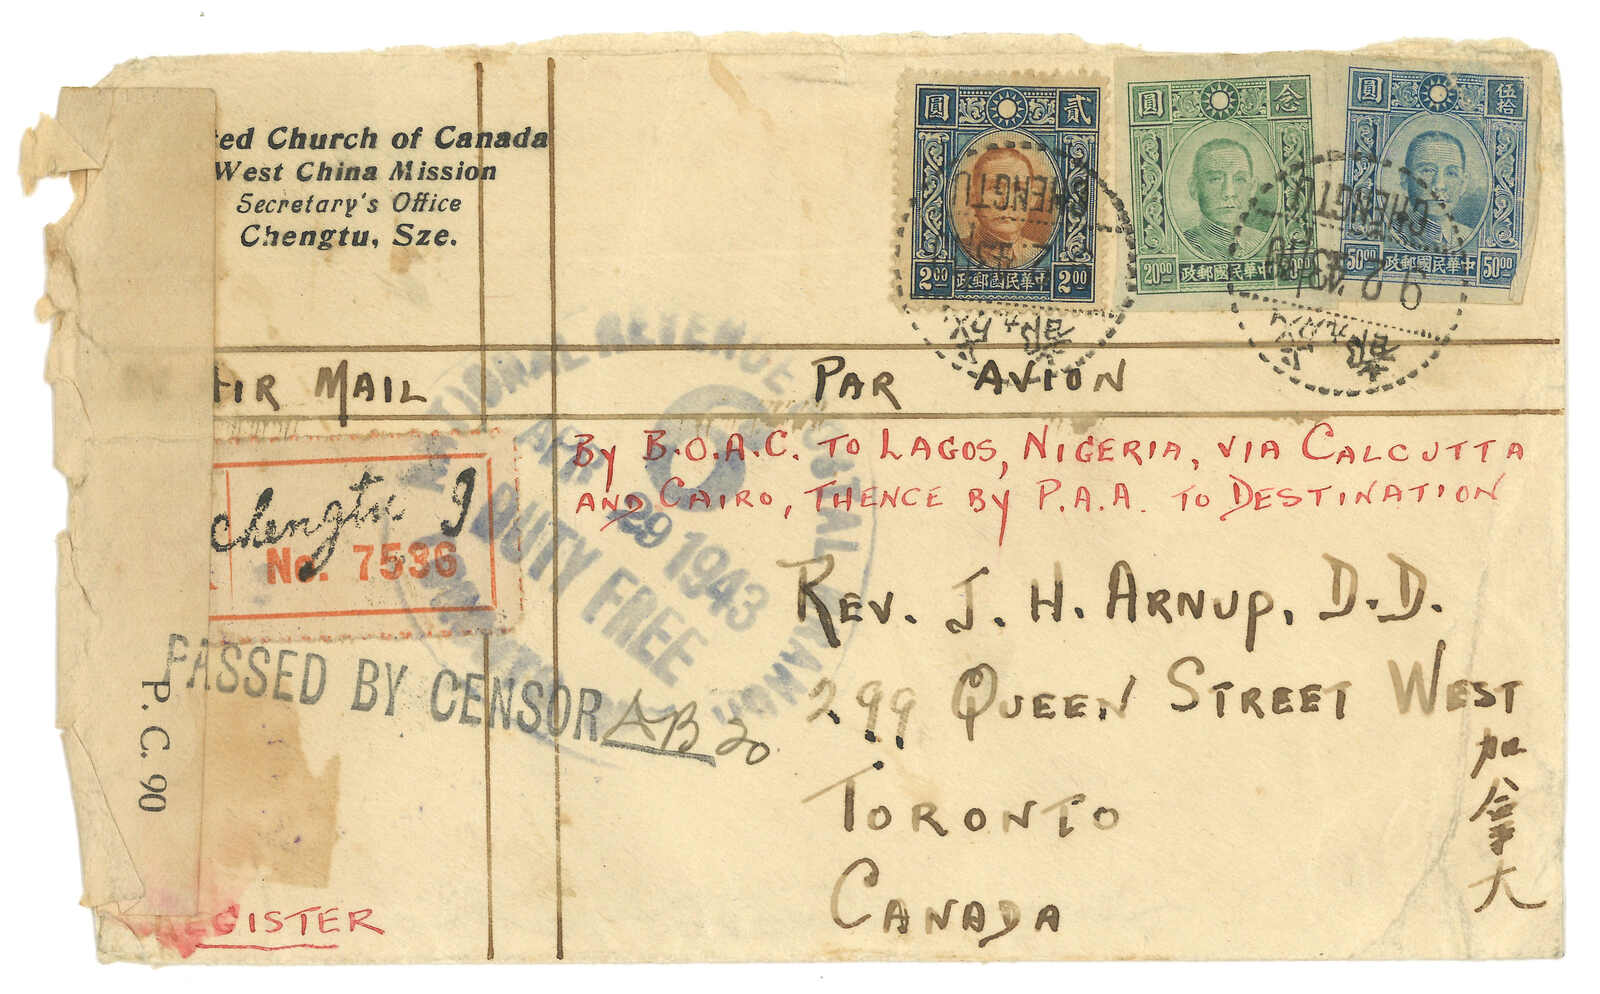 ted Church of Canada
West China Mission
Secretary's Office
Chengtu, Sze.
圓 貳
2 00 中華民國郵政 2 00
圓 念
20 00 中華民國郵政 20 00
圓 伍拾
50 00 中華民國郵政 50 00
CHENGTU
CHENGTU
9 2
AIR MAIL PAR AVION
By B.O.A.C. TO LAGOS, NIGERIA, VIA CALCUTTA
AND CAIRO, THENCE BY P.A.A. TO DESTINATION
chengtu 9
No. 7536
NATIONAL REVENUE POSTAL BRANCH
APR 29 1943
DUTY FREE
PASSED BY CENSOR AB 20
P. C. 90
REV. J. H. ARNUP, D.D.
299 QUEEN STREET WEST
TORONTO
CANADA
加拿大
REGISTER